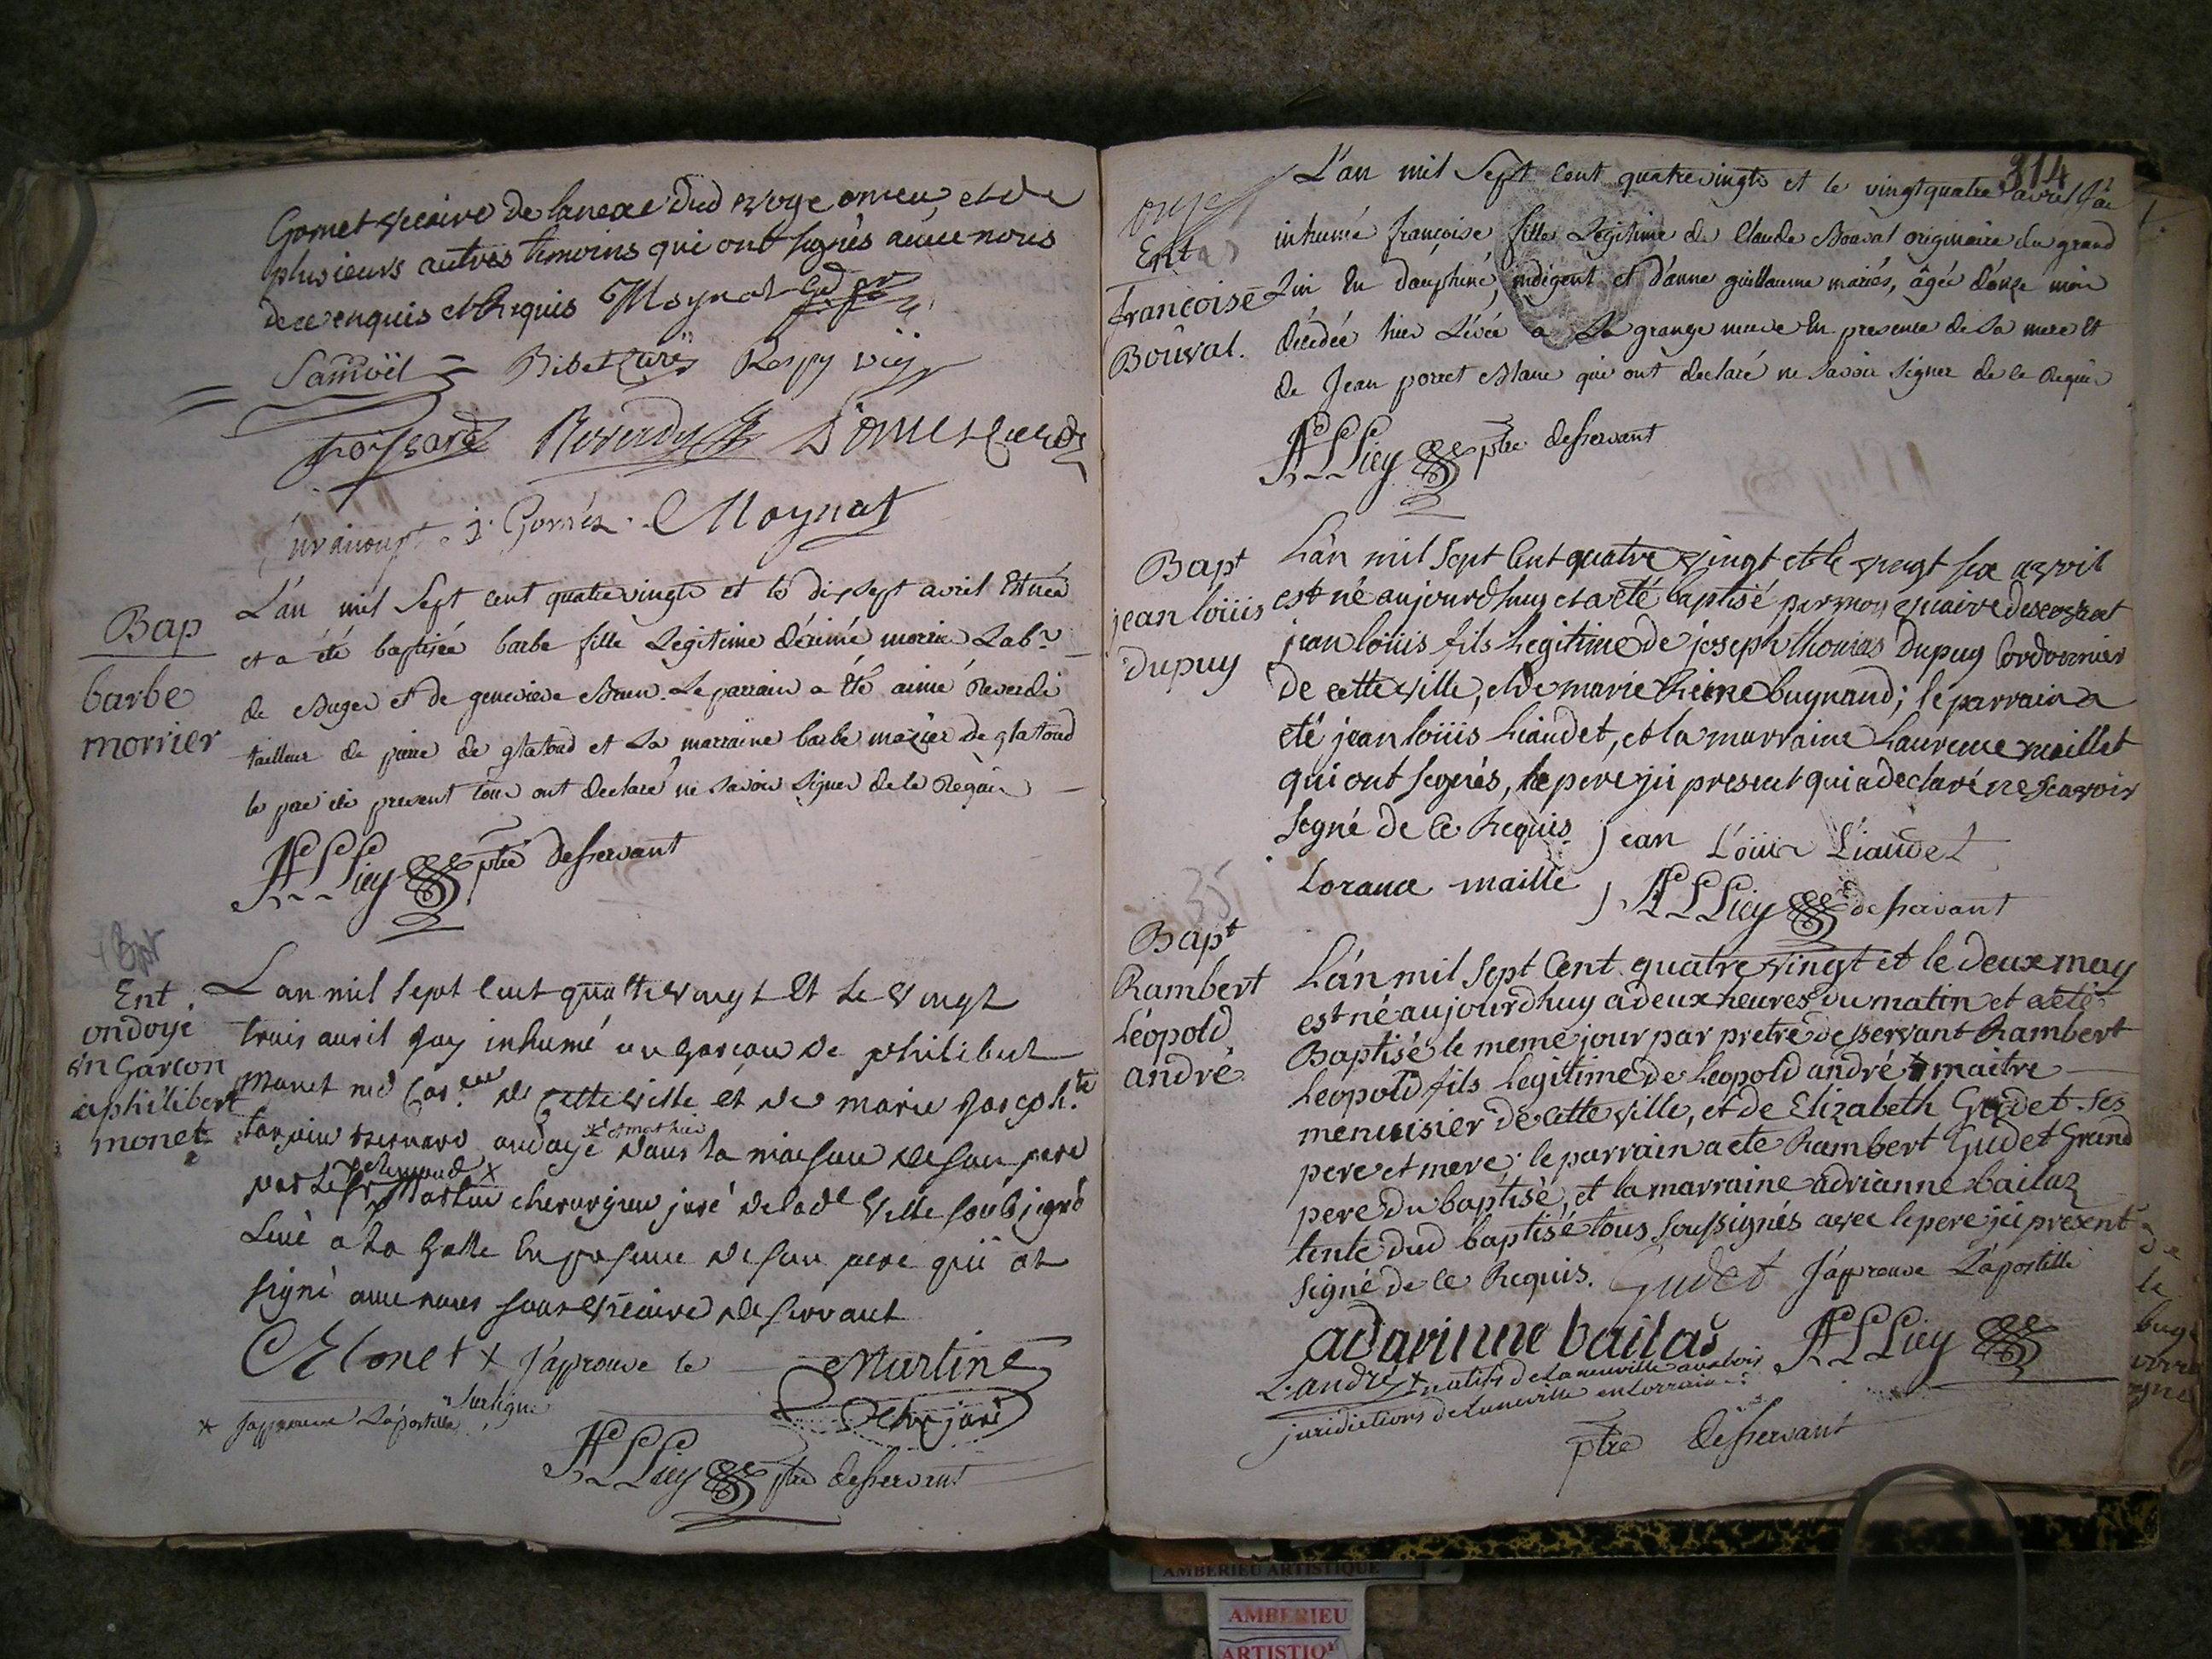 Gomet vicaire de lanexe dud
plusieurs autres temoins qui ont signés avec nous
de ce enquis et Requis Moynat
Samuël Bibet Curé
J. Gomet Moynat
Bap
barbe
morrier
L'an mil Sept cent quatrevingts et le dixsept avril Est née
et a été baptisée barbe fille Légitime d'aimé morrier Lab.r
de et de genevieve Le parrain a été aimé Reverdi
tailleur de pierre de et La marraine barbe de
le pere ici présent tous ont déclaré ne savoir signer de ce Requis
ALLiey ptre desservant
Ent
ondoyé
un Garcon
a philibert
monet
L'an mil sept cent quattre vingt Et Le vingt
trois avril Jay inhumé un garçon de philibert
Monet de Cette ville et de marie Joseph.te
ondoyé dans la maison de son pere
par Le Sr Martine chirurgien juré de lad.e Ville soubsigné
Levé a la halle En presence de son pere qui at
signé avec nous desservant
Monet x J'approuve le Martine
surligne
* J'approuve L'apostille Chr juré
ALLiey ptre desservant
314
Ent
françoise
Bouval.
L'an mil Sept Cent quatrevingts et le vingtquatre avril J'ai
inhumé françoise fille Légitime de Claude Bouval originaire du grand
En dauphiné, indigent et d'anne guillaume mariés, âgée d'onze mois
décédée hier Levée a La grange neuve En presence de La mere et
de Jean porret Blanc qui ont déclaré ne savoir signer de ce Requis
ALLiey ptre desservant
Bapt
jean loüis
Dupuy
L'an mil Sept Cent quatre vingt et le vingt six avril
est né aujourdhuy et a été baptisé par
jean loüis fils Legitime de joseph thomas Dupuy Cordonnier
de cette ville, et de marie Reine bugnaud; le parrain a
eté jean loüis Liaudet, et la marraine Laurence maillet
qui ont signés, le pere jci present qui a declaré ne scavoir
signé de ce Requis. Jean Loüis Liaudet
Lorance maille ALLiey desservant
35
Bapt
Rambert
Léopold
andré
L'an mil Sept Cent quatre vingt et le deux may
est né aujourdhuy a deux heures du matin et a eté
Baptisé le meme jour par pretre desservant Rambert
Leopold fils Legitime de Leopold andré x maitre
menuisier de cette ville, et de Elizabeth Gudet ses
pere et mere; le parrain a ete Rambert Gudet Grand
pere du baptisé, et la marraine adrianne bailaz
tente dud baptisé tous soussignés avec le pere jci present
signé de ce Requis. Gudet J'approuve L'apostille
adarinne bailas ALLiey
L. andré x natifs de Laneuville aux bois
juridictions de Luneville en Lorraine
ptre desservant
AMBERIEU ARTISTIQUE
AMBERIEU